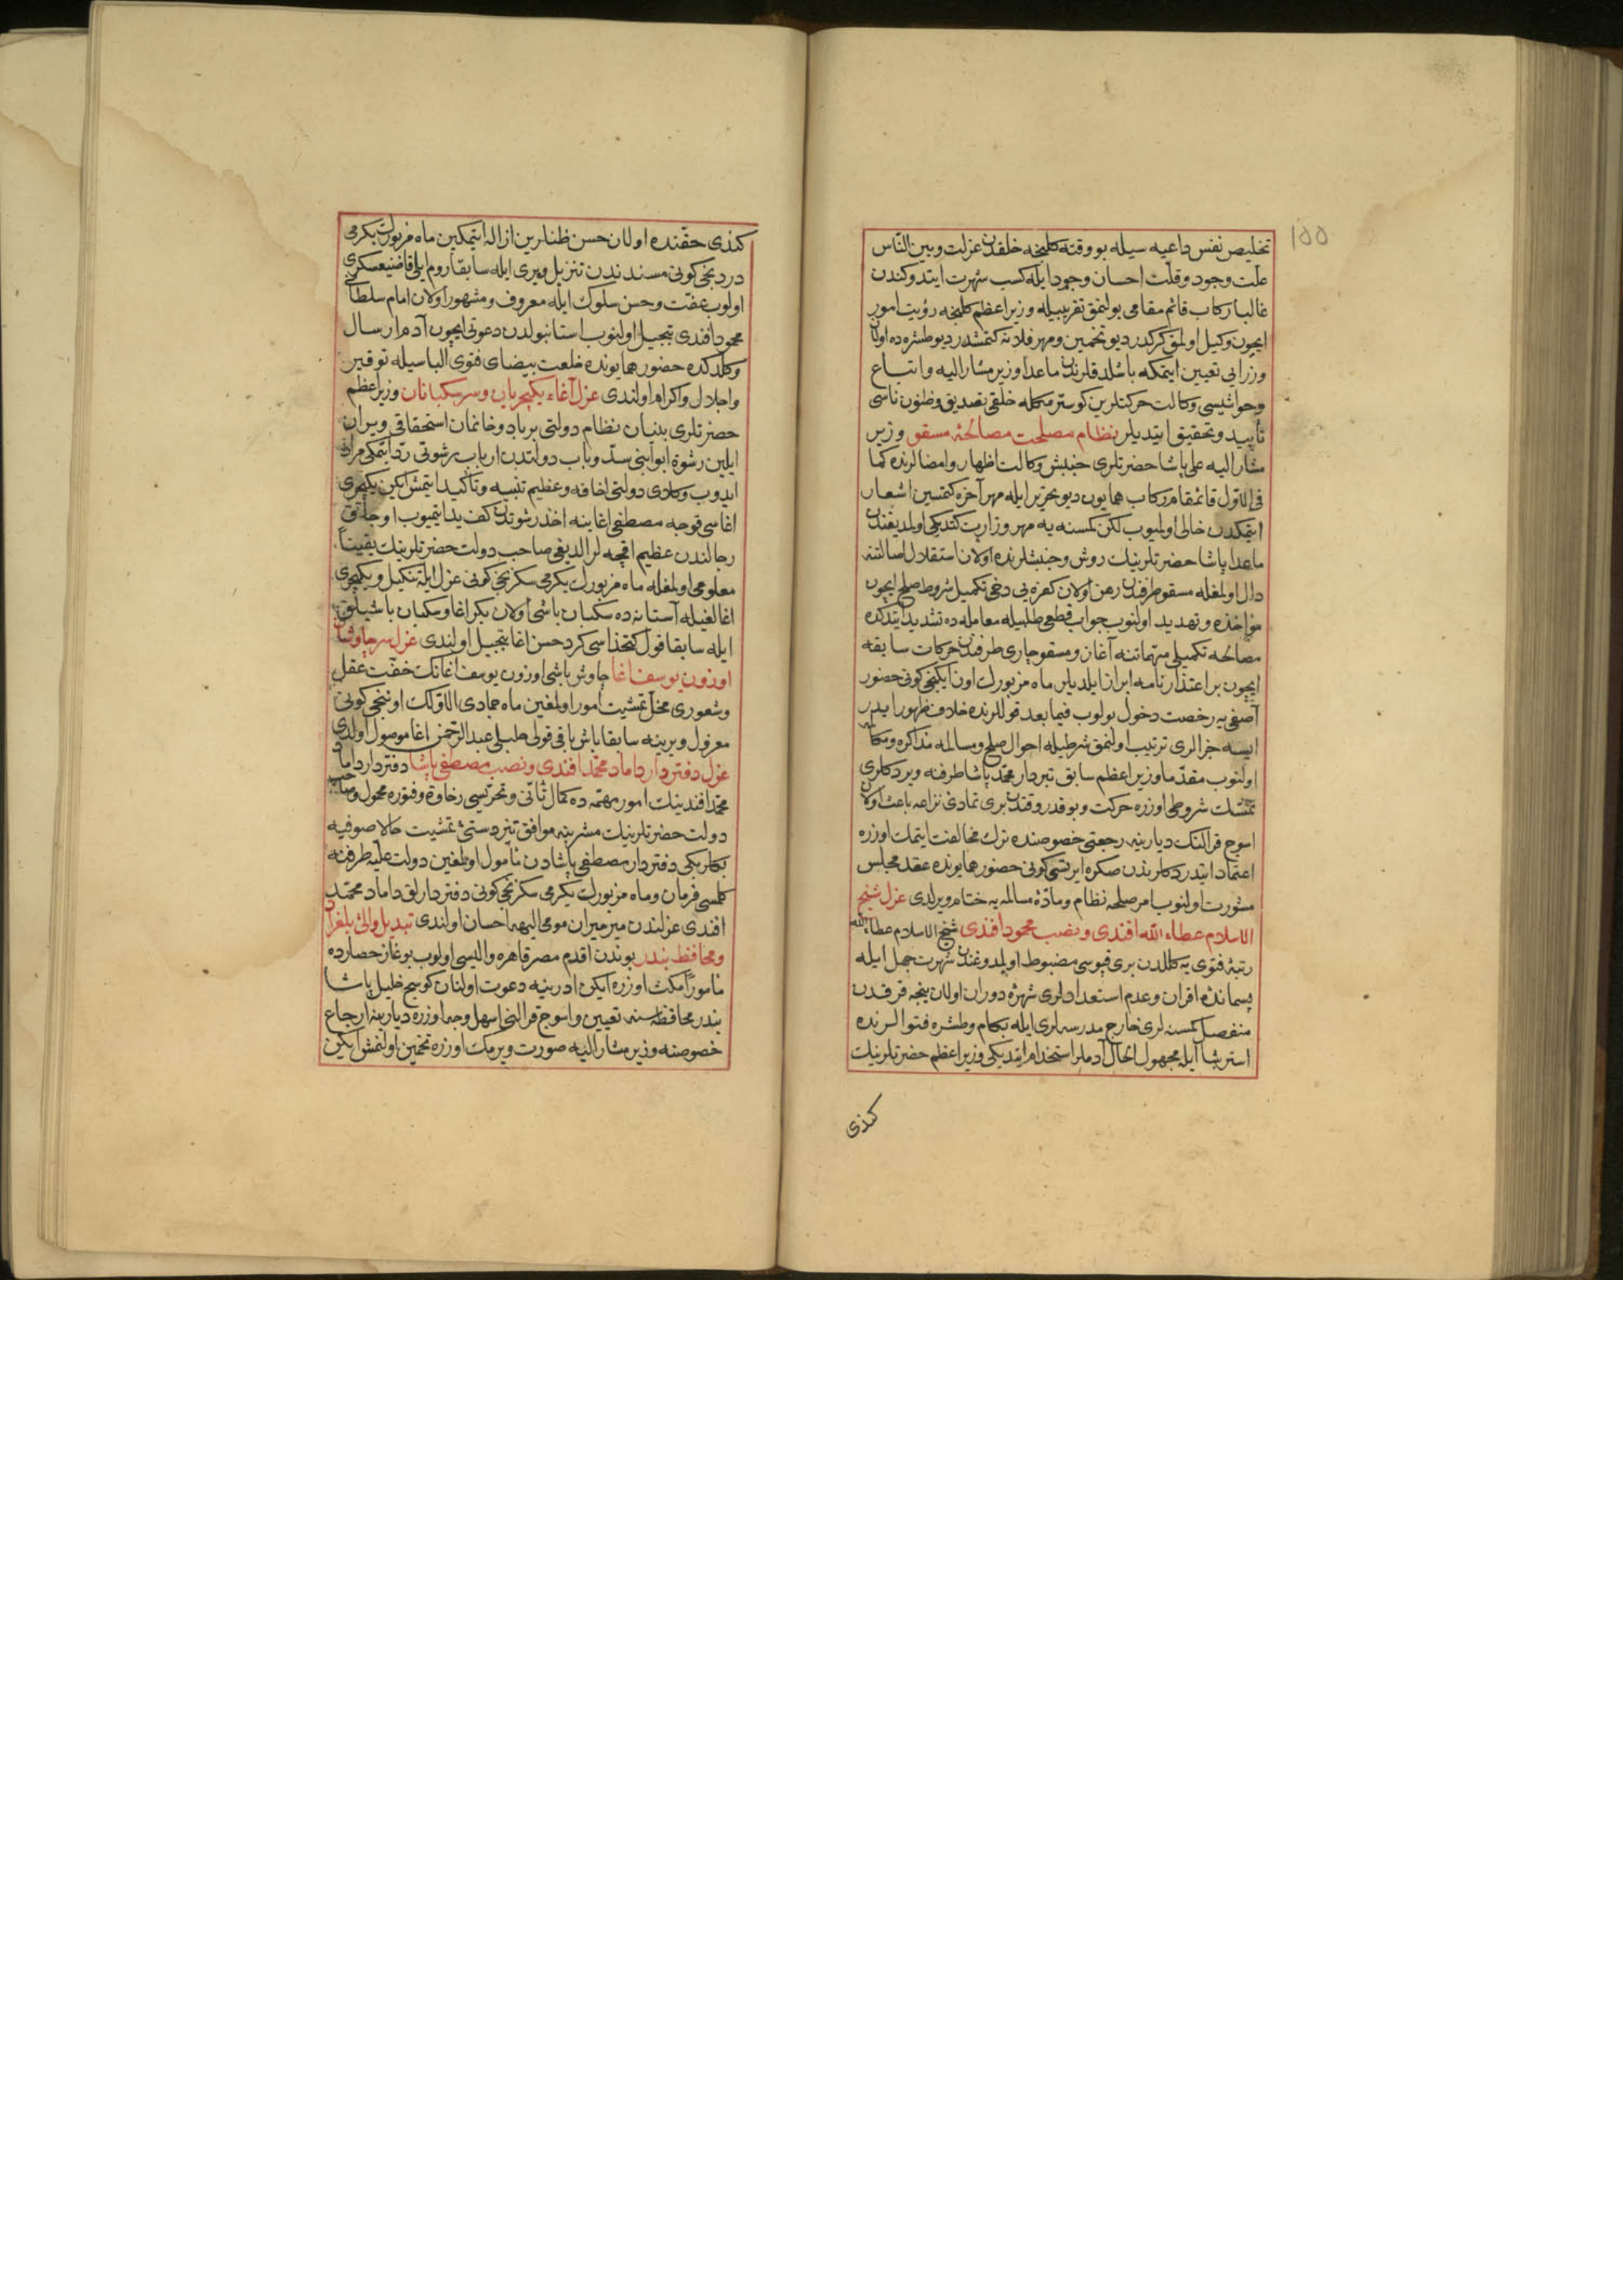 ١٥٥
تخلیص نفس داعیه سیله بو وقته کلنجه خلقدن عزلت و بین الناس
علت وجود و قلت احسان وجود ایله کسب شهرت ایتدوکندن
غالبا رکاب قائم مقامی بولنمق تقریبیله وزیر اعظم کلنجه رؤیت امور
ایچون وکیل اولمق کرکدر دیو تخمین و مهر فلانه کتمشدر دیو طشره ده اولان
وزرایی تعیین ایتمکه باشلدقلرندن ماعدا وزیر مشار الیه و اتباع
و حواشیسی وکالت حرکتلرین کوسترمکله خلقی تصدیق و ظنون ناسی
تأیید و تحقیق ایتدیلر نظام مصلحت مصالحۀ مسقو وزیر
مشار الیه علی پاشا حضرتلری جنبش وکالت اظهار و امضالرنده کما
فی الاول قائمقام رکاب همایون دیو تحریر ایله مهر آخره کتمسین اشعار
ایتمکدن خالی اولمیوب لکن کمسنه یه مهر وزارت کتدیکی اولمدیغندن
ماعدا پاشا حضرتلرینك روش و جنبشلرنده اولان استقلال اصالتنه
دال اولمغله مسقو طرفندن رهن اولان کفره یی دخی تکمیل شروط صلح ایچون
مؤاخذه و تهدید اولنوب جواب قطعی طلبیله معامله ده تشدید ایتدکده
مصالحه تکمیلی مهماتنه آغاز و مسقو چاری طرفندن حرکات سابقه
ایچون بر اعتذارنامه ابراز ایلدیلر ماه مزبورك اون ایکنجی کونی حضور
آصفی یه رخصت دخول بولوب فیما بعد قوللرنده خلاف ظهور ایدر
ایسه جزالری ترتیب اولنمق شرطیله احوال صلح و مسالمه مذاکره و مکالمه
اولنوب مقدما وزیر اعظم سابق تبردار محمد پاشا طرفنه ویردکلری
تمسك شروطی اوزره حرکت و بو قدر وقتدن بری تمادئ نزاعه باعث اولان
اسوج قرالنك دیارینه رجعتی خصوصنده ترك مخالفت ایتمك اوزره
اعتماد ایتدردکلرندن صکره ایرتسی کونی حضور همایونده عقد مجلس
مشورت اولنوب امر صلحه نظام و مادۀ مسالمه یه ختام ویرلدی عزل شیخ
الاسلام عطاء الله افندی و نصب محمود افندی شیخ الاسلام عطاء الله
رتبۀ فتوی یه کلیدن بری قپوسی مضبوط اولمدوغندن شهرت جهل ایله
پسماندۀ اقران و عدم استعدادلری شهرۀ دوران اولان نیجه قرقدن
منفصل کمسنه لری خارج مدرسه لری ایله بکام و طشره فتوالرنده
استرشا ایله مجهول الحال آدملر استخدام ایتدیکی وزیر اعظم حضرتلرینك
کندی
کندی حقنده اولان حسن ظنلرین ازاله ایتمکین ماه مزبورك یکرمی
دردنجی کونی مسندندن تنزیل و یری ایله سابقا روم ایلی قاضیعسکری
اولوب عفت و حسن سلوك ایله معروف و مشهور اولان امام سلطانی
محمود افندی تبجیل اولنوب استانبولدن دعوتی ایچون آدم ارسال
و کلدکده حضور همایونده خلعت بیضای فتوی الباسیله توقیر
و اجلال و اکرام اولندی عزل آغاء یکیچریان و سر سکبانان وزیر اعظم
حضرتلری بنیان نظام دولتی برباد و خانمان استحقاقی ویران
ایلین رشوة ابوابنی سد و باب دولتدن ارباب رشوتی رد ایتمکی مراد
ایدوب وکلای دولتی اخافه و عظیم تنبیه و تأکید ایتمش ایکن یکیچری
اغاسی قوجه مصطفی اغا ینه اخذ رشوتدن کف ید ایتمیوب اوجاق
رجالندن عظیم اقچه لر الدیغی صاحب دولت حضرتلرینك یقینا
معلومی اولمغله ماه مزبورك یکرمی سکزنجی کونی عزل ایله تنکیل و یکیچری
اغالغیله آستانه ده سکبان باشی اولان بکر اغا و سکبان باشیلق
ایله سابقا قول کتخداسی کرد حسن اغا تبجیل اولندی عزل سر چاوشان
اوزون یوسف اغا چاوش باشی اوزون یوسف اغانك خفت عقل
و شعوری مخل تمشیت امور اولمغین ماه جمادی الاولك اوننجی کونی
معزول و یرینه سابقا باش باقی قولی طبلی عبد الرحمن اغا موصول اولدی
عزل دفتردار داماد محمد افندی و نصب مصطفی پاشا دفتردار داماد
محمد افندینك امور مهمه ده کمال تأنی و تحریسی رخاوة و فتوره محمول و صاحب
دولت حضرتلرینك مشربنه موافق تیز دستئ تمشیت حالا صوفیه
بکلربکی دفتردار مصطفی پاشادن مأمول اولمغین دولت علیه طرفنه
کلمسی فرمان و ماه مزبورك یکرمی سکزنجی کونی دفتردارلق داماد محمد
افندی عزلندن میرمیران مومی الیهه احسان اولندی تبدیل والئ بلغراد
و محافظ بندر بوندن اقدم مصر قاهره والیسی اولوب بوغاز حصارده
مأمورا مکث اوزره ایکن ادرنه یه دعوت اولنان کوسج خلیل پاشا
بندر محافظه سنه تعیین و اسوج قرالنی اسهل وجه اوزره دیارینه ارجاع
خصوصنه وزیر مشار الیه صورت ویرمك اوزره تخمین اولنمش ایکن